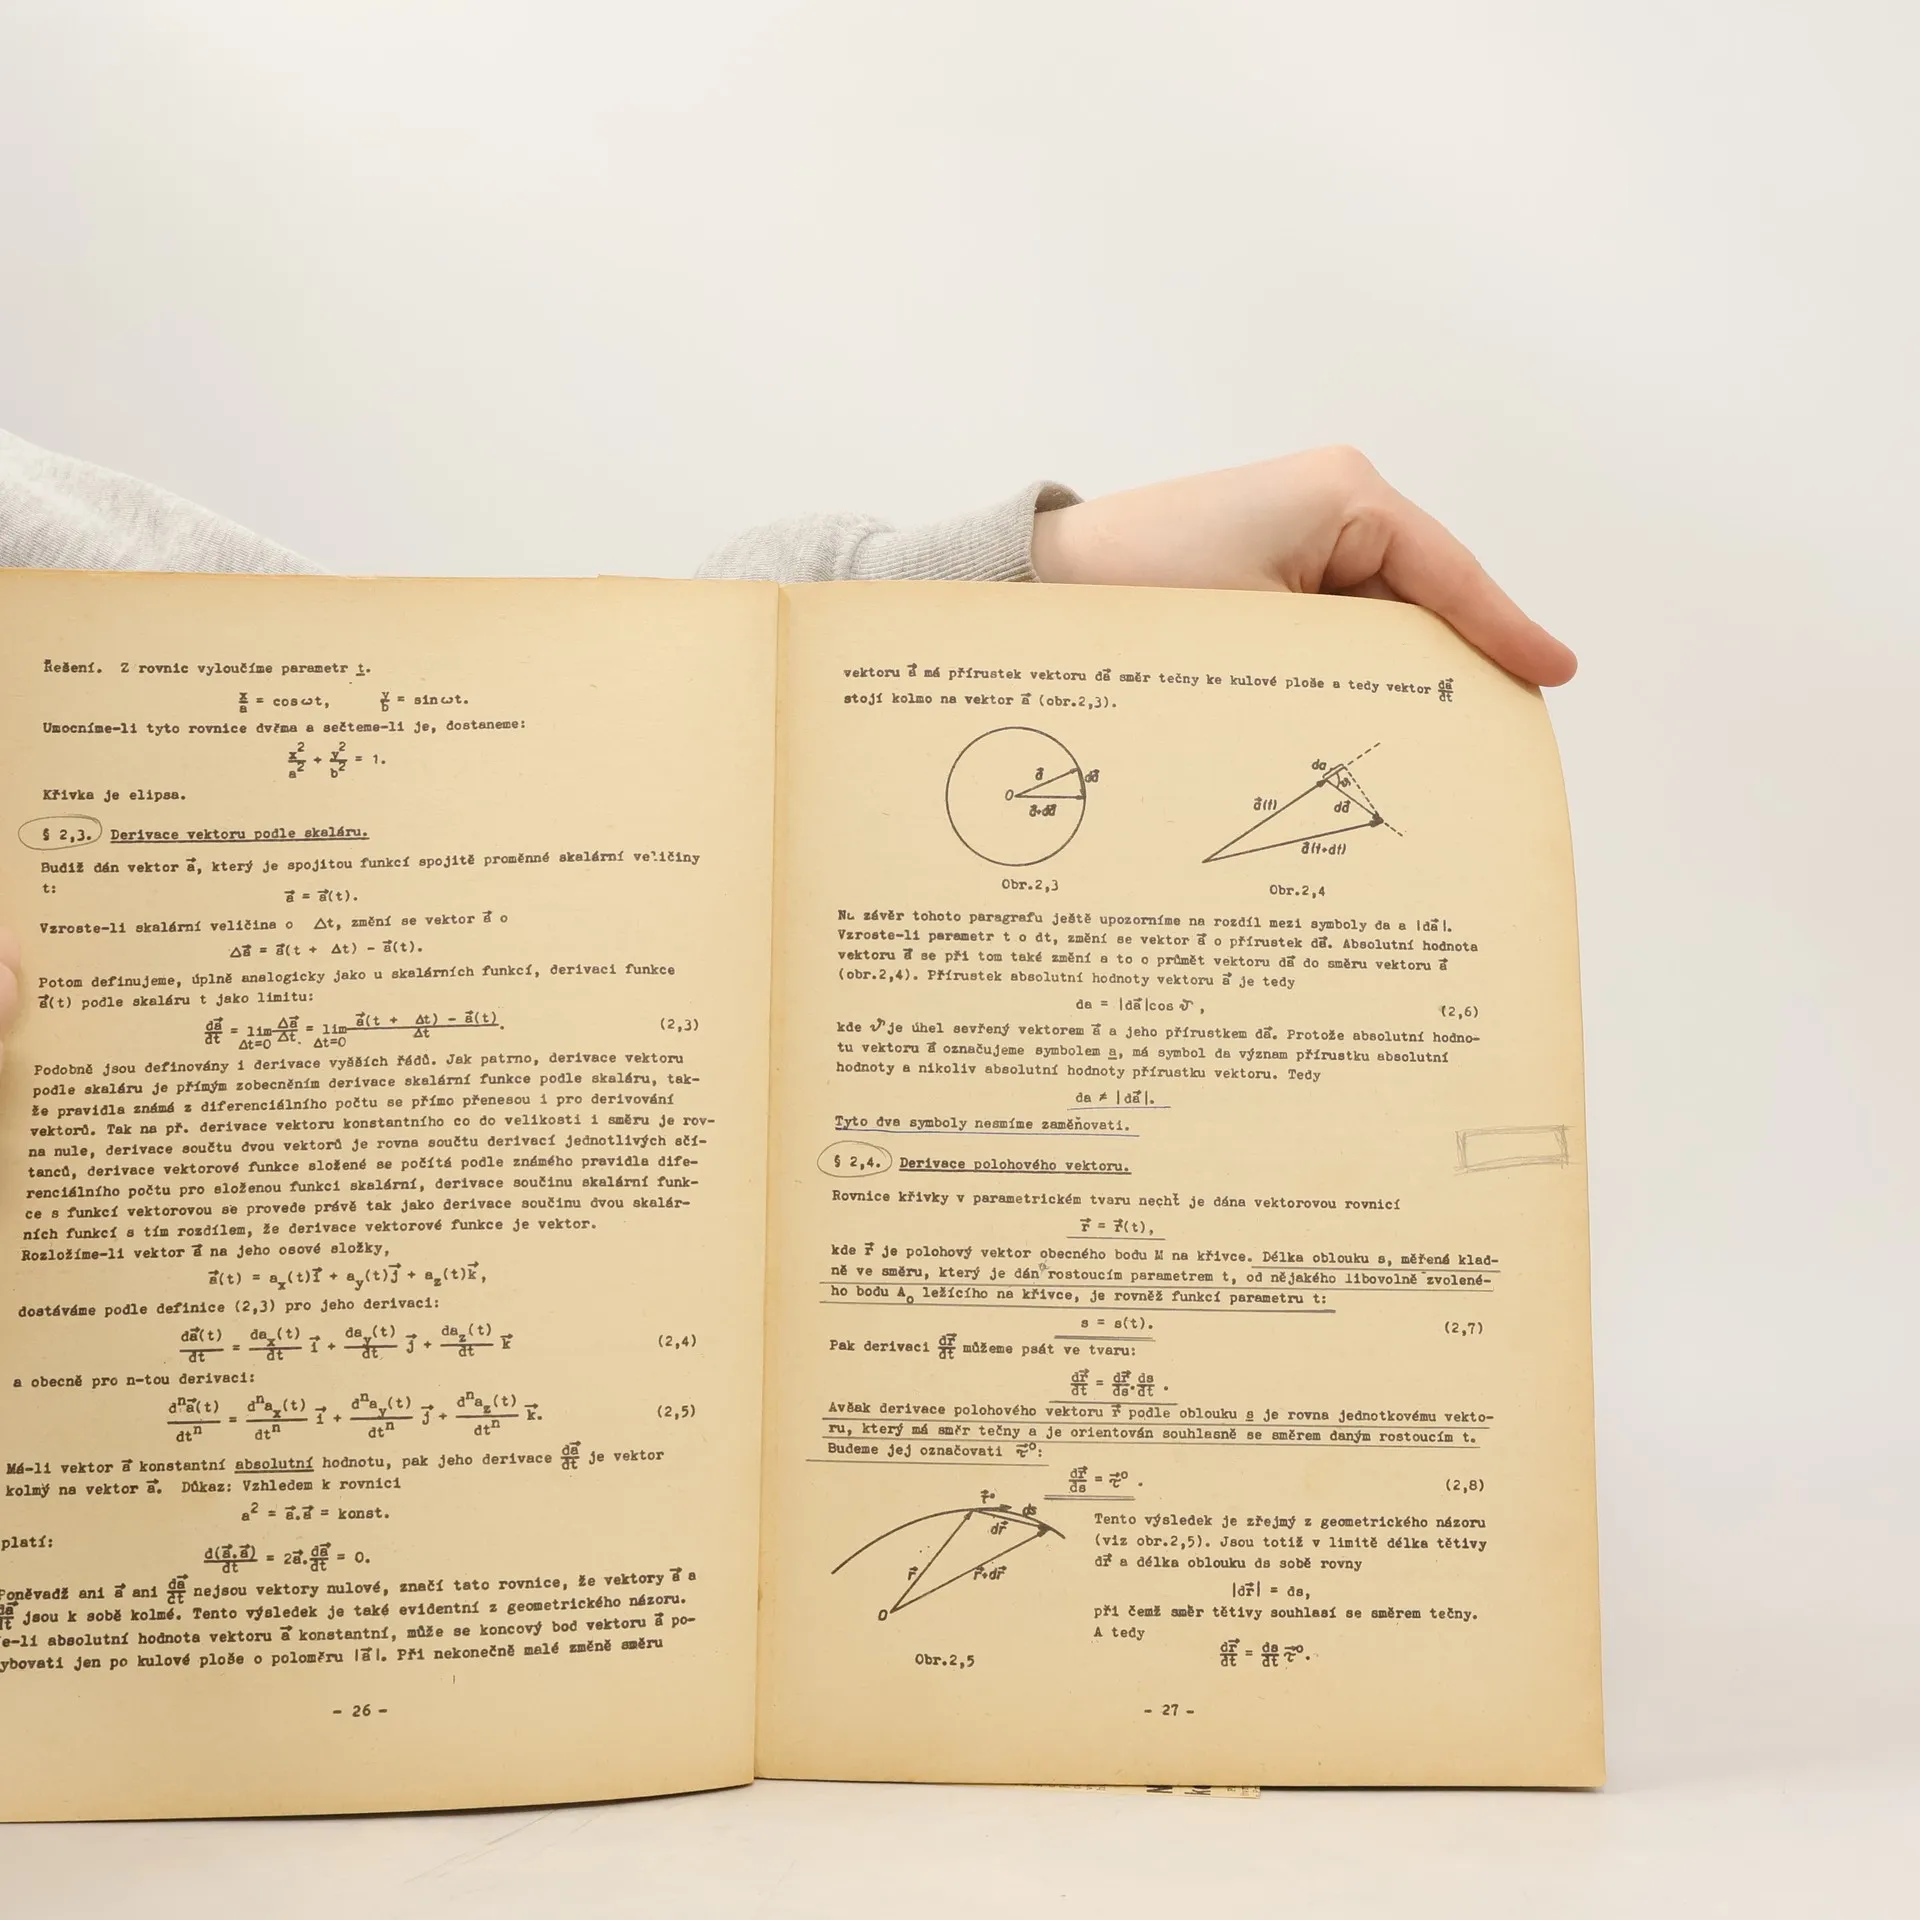 Řešení. Z rovnic vyloučíme parametr t.
x/a = cos ωt, y/b = sin ωt.
Umocníme-li tyto rovnice dvěma a sečteme-li je, dostaneme:
x²/a² + y²/b² = 1.
Křivka je elipsa.
§ 2,3. Derivace vektoru podle skaláru.
Budiž dán vektor a⃗, který je spojitou funkcí spojitě proměnné skalární veličiny
t:
a⃗ = a⃗(t).
Vzroste-li skalární veličina o Δt, změní se vektor a⃗ o
Δa⃗ = a⃗(t + Δt) - a⃗(t).
Potom definujeme, úplně analogicky jako u skalárních funkcí, derivaci funkce
a⃗(t) podle skaláru t jako limitu:
da⃗/dt = lim Δt=0 Δa⃗/Δt = lim Δt=0 a⃗(t + Δt) - a⃗(t)/Δt. (2,3)
Podobně jsou definovány i derivace vyšších řádů. Jak patrno, derivace vektoru
podle skaláru je přímým zobecněním derivace skalární funkce podle skaláru, tak-
že pravidla známá z diferenciálního počtu se přímo přenesou i pro derivování
vektorů. Tak na př. derivace vektoru konstantního co do velikosti i směru je rov-
na nule, derivace součtu dvou vektorů je rovna součtu derivací jednotlivých sčí-
tanců, derivace vektorové funkce složené se počítá podle známého pravidla dife-
renciálního počtu pro složenou funkci skalární, derivace součinu skalární funk-
ce s funkcí vektorovou se provede právě tak jako derivace součinu dvou skalár-
ních funkcí s tím rozdílem, že derivace vektorové funkce je vektor.
Rozložíme-li vektor a⃗ na jeho osové složky,
a⃗(t) = aₓ(t)i⃗ + a_y(t)j⃗ + a_z(t)k⃗,
dostáváme podle definice (2,3) pro jeho derivaci:
da⃗(t)/dt = daₓ(t)/dt i⃗ + da_y(t)/dt j⃗ + da_z(t)/dt k⃗ (2,4)
a obecně pro n-tou derivaci:
dⁿa⃗(t)/dtⁿ = dⁿaₓ(t)/dtⁿ i⃗ + dⁿa_y(t)/dtⁿ j⃗ + dⁿa_z(t)/dtⁿ k⃗. (2,5)
Má-li vektor a⃗ konstantní absolutní hodnotu, pak jeho derivace da⃗/dt je vektor
kolmý na vektor a⃗. Důkaz: Vzhledem k rovnici
a² = a⃗.a⃗ = konst.
platí:
d(a⃗.a⃗)/dt = 2a⃗.da⃗/dt = 0.
Poněvadž ani a⃗ ani da⃗/dt nejsou vektory nulové, značí tato rovnice, že vektory a⃗ a
da⃗/dt jsou k sobě kolmé. Tento výsledek je také evidentní z geometrického názoru.
e-li absolutní hodnota vektoru a⃗ konstantní, může se koncový bod vektoru a⃗ po-
ybovati jen po kulové ploše o poloměru |a⃗|. Při nekonečně malé změně směru
- 26 -
vektoru a⃗ má přírustek vektoru da⃗ směr tečny ke kulové ploše a tedy vektor da⃗/dt
stojí kolmo na vektor a⃗ (obr.2,3).
O a⃗ da⃗ a⃗+da⃗
Obr.2,3
da ϑ a⃗(t) da⃗ a⃗(t+dt)
Obr.2,4
Na závěr tohoto paragrafu ještě upozorníme na rozdíl mezi symboly da a |da⃗|.
Vzroste-li parametr t o dt, změní se vektor a⃗ o přírustek da⃗. Absolutní hodnota
vektoru a⃗ se při tom také změní a to o průmět vektoru da⃗ do směru vektoru a⃗
(obr.2,4). Přírustek absolutní hodnoty vektoru a⃗ je tedy
da = |da⃗|cos ϑ, (2,6)
kde ϑ je úhel sevřený vektorem a⃗ a jeho přírustkem da⃗. Protože absolutní hodno-
tu vektoru a⃗ označujeme symbolem a, má symbol da význam přírustku absolutní
hodnoty a nikoliv absolutní hodnoty přírustku vektoru. Tedy
da ≠ |da⃗|.
Tyto dva symboly nesmíme zaměňovati.
§ 2,4. Derivace polohového vektoru.
Rovnice křivky v parametrickém tvaru nechť je dána vektorovou rovnicí
r⃗ = r⃗(t),
kde r⃗ je polohový vektor obecného bodu M na křivce. Délka oblouku s, měřená klad-
ně ve směru, který je dán rostoucím parametrem t, od nějakého libovolně zvolené-
ho bodu A₀ ležícího na křivce, je rovněž funkcí parametru t:
s = s(t). (2,7)
Pak derivaci dr⃗/dt můžeme psát ve tvaru:
dr⃗/dt = dr⃗/ds.ds/dt.
Avšak derivace polohového vektoru r⃗ podle oblouku s je rovna jednotkovému vekto-
ru, který má směr tečny a je orientován souhlasně se směrem daným rostoucím t.
Budeme jej označovati τ⃗⁰:
dr⃗/ds = τ⃗⁰. (2,8)
τ⃗⁰ ds dr⃗ r⃗ r⃗+dr⃗ O
Obr.2,5
Tento výsledek je zřejmý z geometrického názoru
(viz obr.2,5). Jsou totiž v limitě délka tětivy
dr⃗ a délka oblouku ds sobě rovny
|dr⃗| = ds,
při čemž směr tětivy souhlasí se směrem tečny.
A tedy
dr⃗/dt = ds/dt τ⃗⁰.
- 27 -